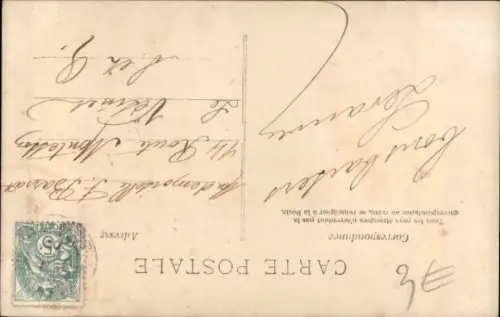 CARTE POSTALE
Correspondance
Tous les pays étrangers n'acceptent pas la
correspondance au recto, se renseigner à la Poste.
Adresse
Bons baisers
Mademoiselle J.
44 Route Montesson
Le Vésinet
S. et O.
5